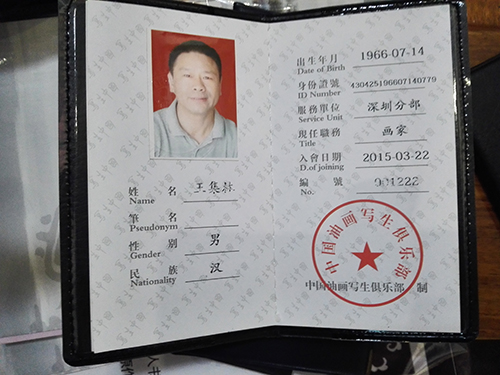 姓 名
Name
王集林
筆 名
Pseudonym
性 别
Gender
男
民 族
Nationality
汉
出生年月
Date of Birth
1966-07-14
身份證號
ID Number
430425196607140779
服務單位
Service Unit
深圳分部
現任職務
Title
画家
入會日期
D.of joining
2015-03-22
編 號
No.
001222
中国油画写生俱乐部
中国油画写生俱乐部 制